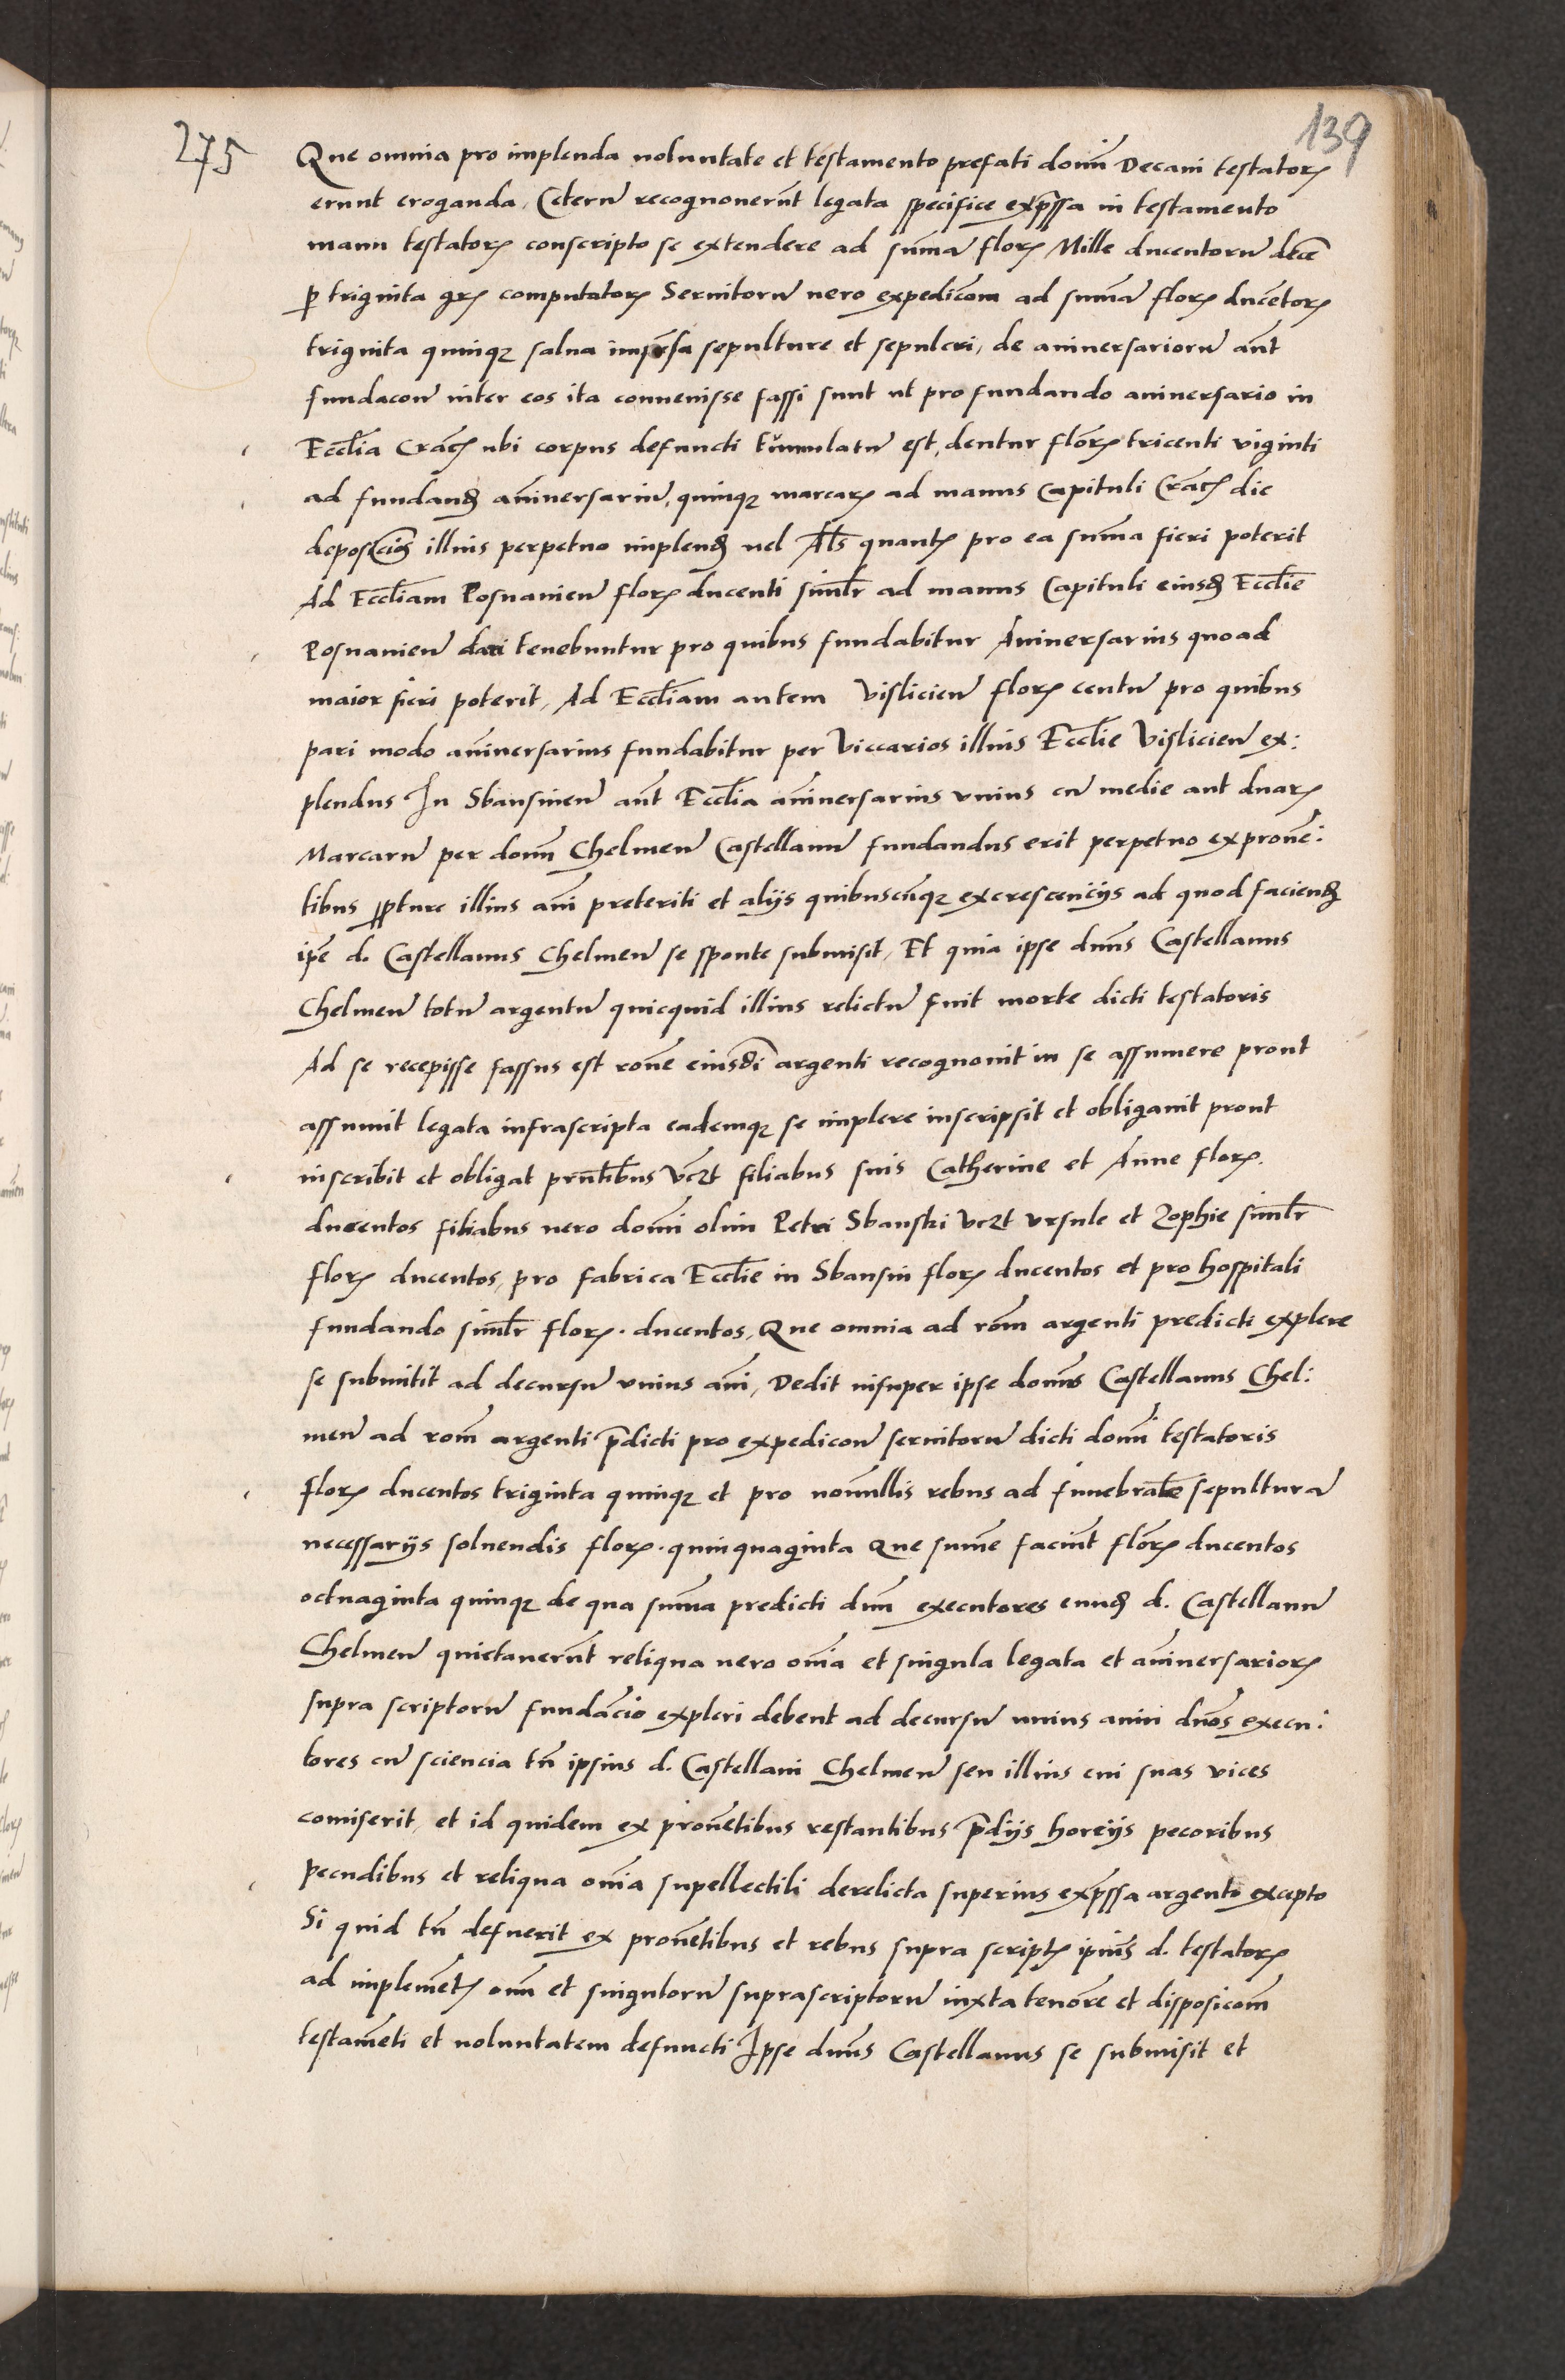 275
139
Que omnia pro implenda voluntate et testamento prefati domī Decani testatorꝭ
erunt eroganda, Ceterū recognouerūt legata specifice exp̄ssa in testamento
manu testatorꝭ conscripto se extendere ad sūmā florꝭ Mille ducentorū decē
ꝑ triginta grꝭ computatorꝭ Seruitorū uero expedicōm ad summā florꝭ ducētorꝭ
triginta quinqꝫ salua impēsa sepulture et sepulcri, de aniuersariorū aūt
fundacoē inter eos ita conuenisse fassi sunt ut pro fundando aniuersario in
Eccl̄ia Cracꝭ ubi corpus defuncti tŭmulatū est, dentur florꝭ tricenti viginti
ad fundandꝫ aniuersariū, quinqꝫ marcarꝭ ad manus Capituli Cracꝭ die
deposicōis illius perpetuo implendꝫ uel Al̄s quantꝭ pro ea summa fieri poterit
Ad Eccl̄iam Posnanien̄ florꝭ ducenti simłr ad manus Capituli eiusdꝫ Eccl̄ie
Posnanien̄ dari tenebuntur pro quibus fundabitur Aniuersarius quoad
maior fieri poterit, Ad Eccl̄iam autem Vislicien̄ florꝭ centū pro quibus
pari modo aniuersarius fundabitur per Viccarios illius Eccl̄ie Vislicien̄ ex:
plendus In Sbansinen̄ aūt Eccl̄ia aniuersarius vnius cū medie aut duarꝭ
Marcarū per domī Chelmen̄ Castellanū fundandus erit perpetuo ex prouē:
tibus p̱p̱ture illius ani preteriti et alijs quibuscūqꝫ excrescencijs ad quod faciendꝫ
ip̄e d. Castellanus Chelmen̄ se sponte submisit, Et quia ipse dnūs Castellanus
Chelmen̄ totū argentū quicquid illius relictū fuit morte dicti testatoris
Ad se recepisse fassus est rōne eiusdī argenti recognouit in se assumere prout
assumit legata infrascripta eademqꝫ se implere inscripsit et obligauit prout
inscribit et obligat prn̄tibus vcꝫt filiabus suis Catherine et Anne florꝭ.
ducentos filiabus uero domī olim Petri Sbanski vcꝫt vrsule et Zophie simłr
florꝭ ducentos, pro fabrica Eccl̄ie in Sbansin florꝭ ducentos et pro hospitali
fundando simłr florꝭ. ducentos, Que omnia ad rōm argenti predicti explere
se submitit ad decursū vnius ani, Dedit insuper ipse domūs Castellanus Chel:
men̄ ad rōm argenti p̄dicti pro expedicoē seruitorū dicti domī testatoris
florꝭ ducentos triginta quinqꝫ et pro nonnullis rebus ad funebralē sepulturā
necessarijs soluendis florꝭ. quinquaginta Que sume faciūt florꝭ ducentos
octuaginta quinqꝫ de qua summa predicti dnī executores eundꝫ d. Castellanū
Chelmen̄ quietauerūt reliqua uero oīa et singula legata et aniuersariorꝭ
supra scriptorū fundacio expleri debent ad decursū unius anni dnōs execu:
tores cū sciencia tn̄ ipsius d. Castellani Chelmen̄ seu illius cui suas vices
comiserit, et id quidem ex prouētibus restantibus p̄dijs horeijs pecoribus
pecudibus et reliqua oīa supellectili derelicta superius exp̄ssa argento excepto
Si quid tn̄ defuerit ex prouētibus et rebus supra scriptꝭ ipiūs d. testatorꝭ
ad implemētꝭ oīm et singulorū suprascriptorū iuxta tenorē et disposicōm
testamēti et uoluntatem defuncti Ipse dnūs Castellanus se submisit et